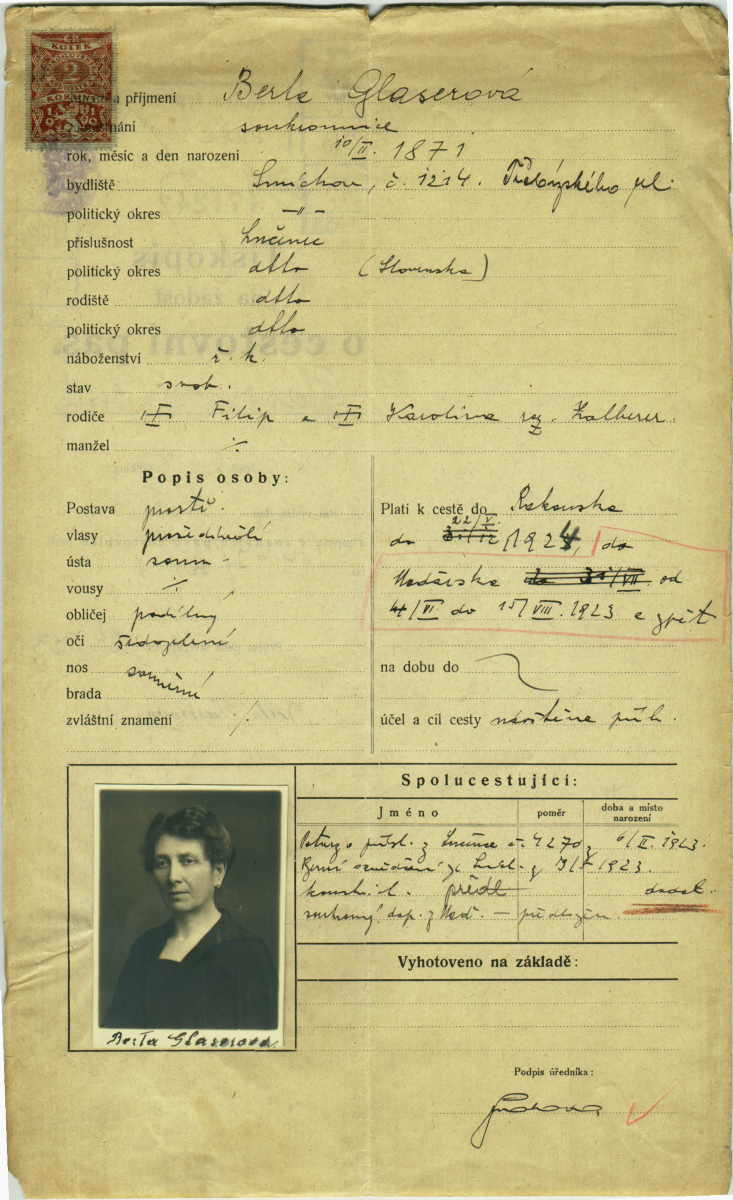 KOLEK
2
a příjmení Berta Glaserová
soukromnice
rok, měsíc a den narození 10/II. 1871
bydliště Smíchov, č. 1214. ul.
politický okres — " —
příslušnost Lučenec
politický okres dtto (Slovensko)
rodiště dtto
politický okres dtto
náboženství ř. k.
stav svob.
rodiče Filip a Karolina roz.
manžel ./.
Popis osoby:
Postava prostř.
vlasy prošedivělé
ústa soum.
vousy ./.
obličej podélný
oči šedozelené
nos souměrný
brada
zvláštní znamení ./.
Platí k cestě do Rakouska
22/V.
do 1924, do
Maďarska do 31/VII. od
4/VI do 15/VIII. 1923 a zpět
na dobu do
účel a cíl cesty návštěva příb.
Spolucestující:
Jméno poměr doba a místo narození
z Lučence č. 4270 z 6/II. 1923.
1923.
předl.
dop. z Maď. — předložen.
Vyhotoveno na základě:
Berta Glaserová
Podpis úředníka: